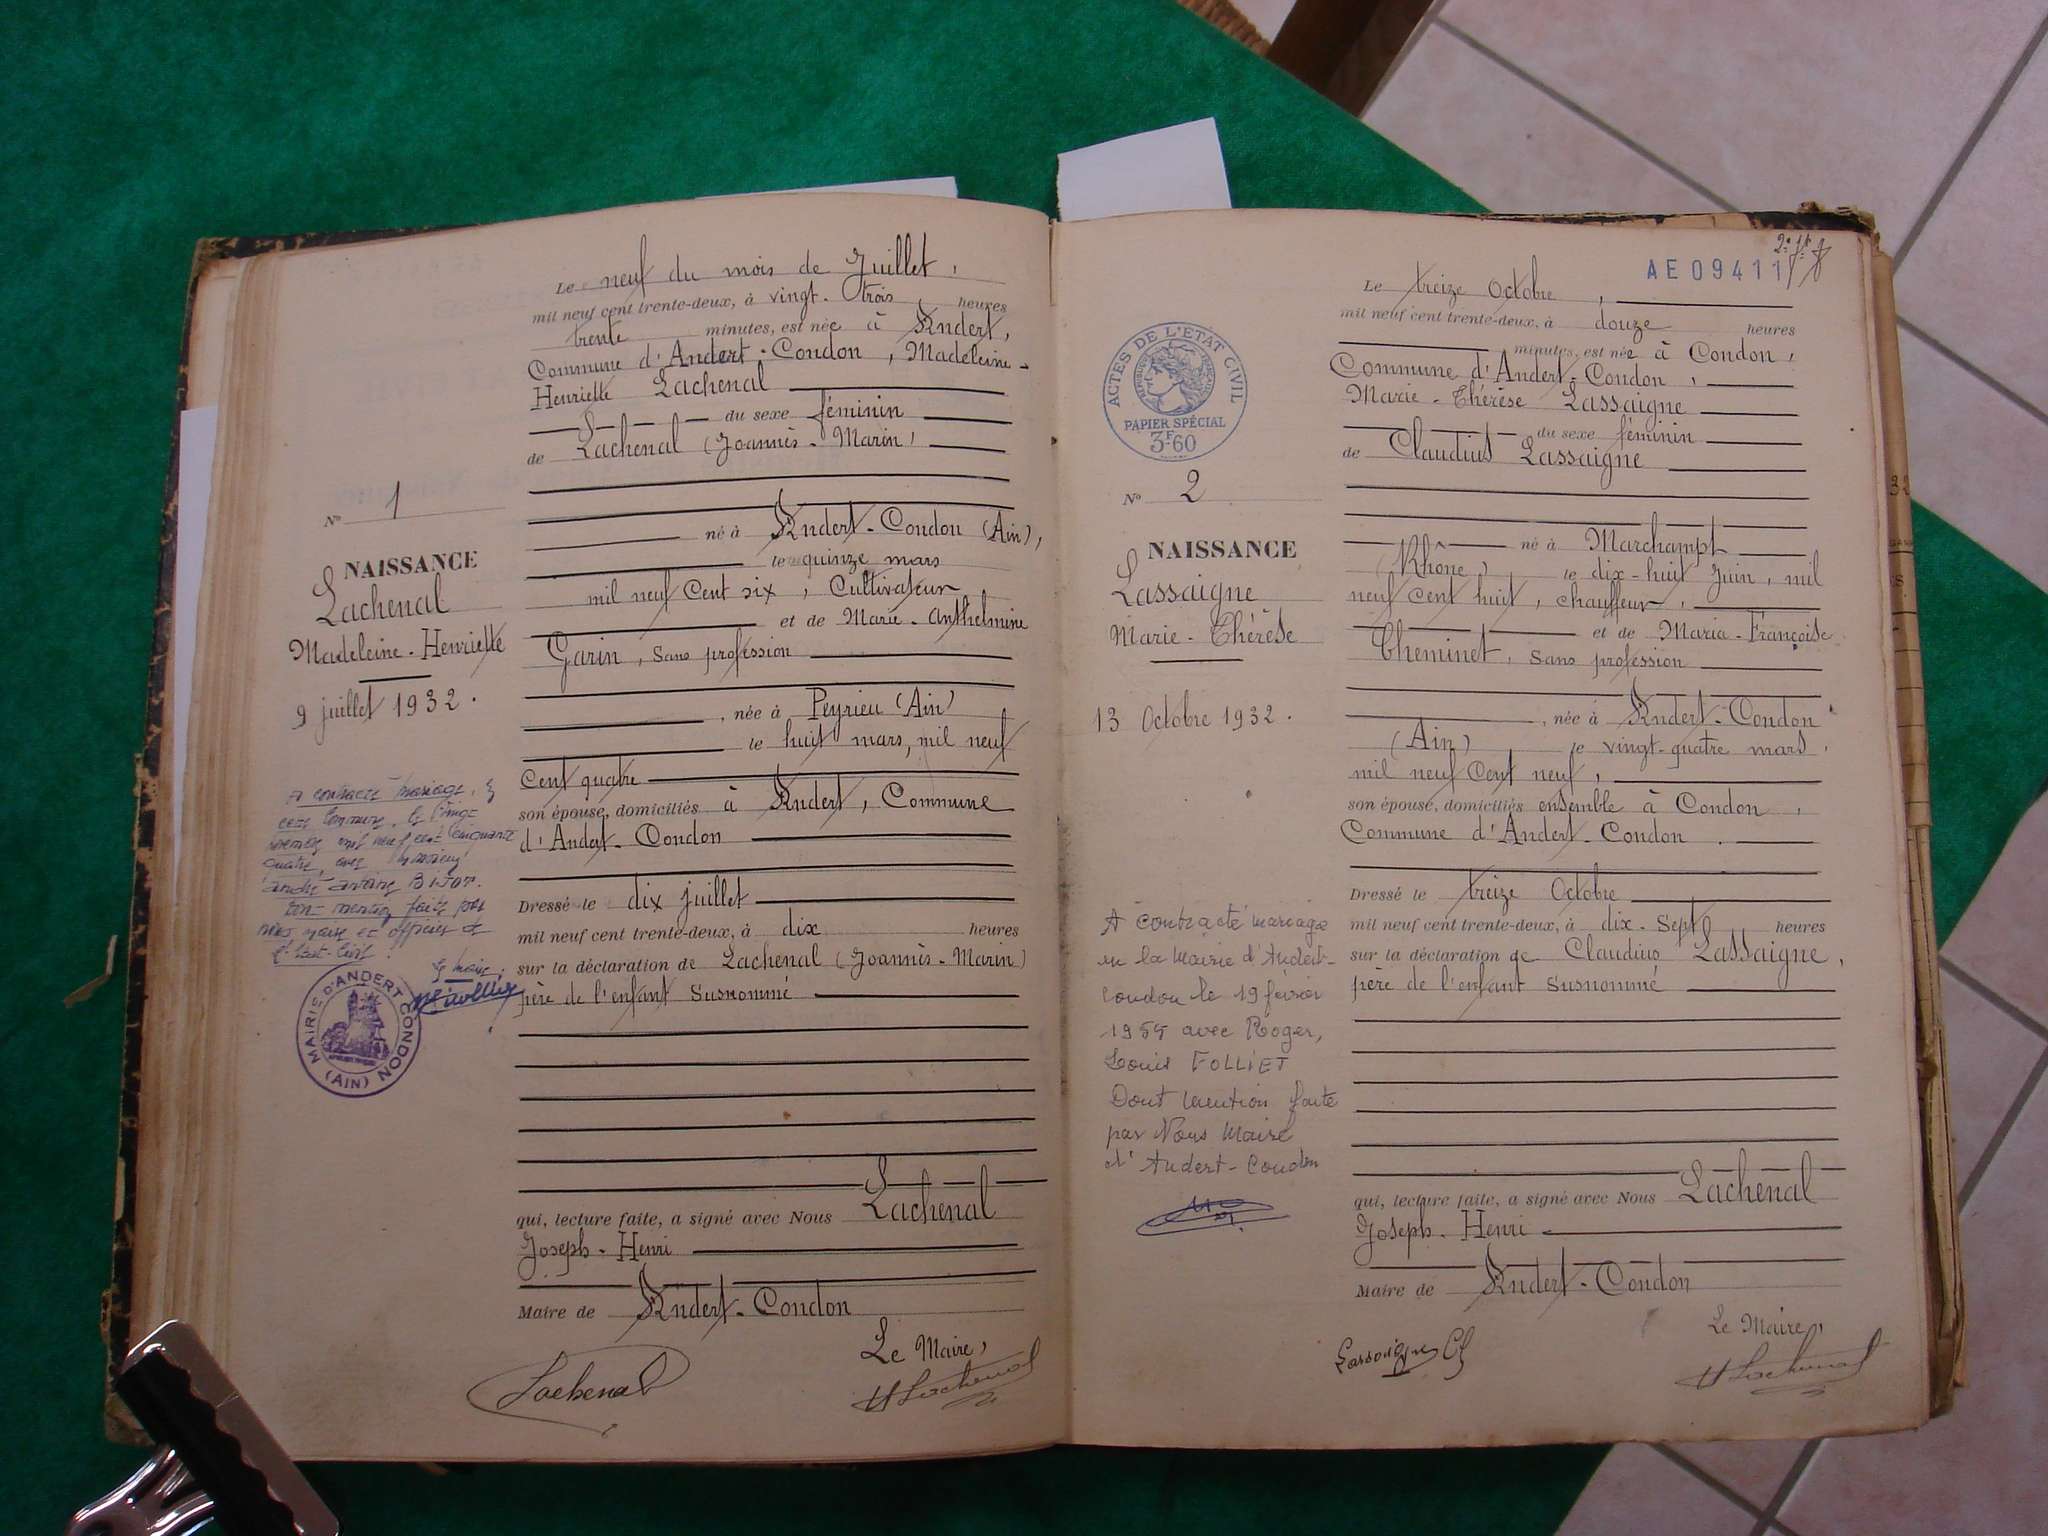 Le neuf du mois de Juillet,
mil neuf cent trente-deux, à vingt-trois heures
trente minutes, est née à Andert,
Commune d'Andert-Condon, Madeleine-
Henriette Lachenal
du sexe féminin
de Lachenal (Joannès-Marin)
né à Andert-Condon (Ain),
le quinze mars
mil neuf Cent six, Cultivateur
et de Marie-Anthelmine
Garin, Sans profession
, née à Peyrieu (Ain)
le huit mars, mil neuf
Cent quatre
son épouse, domiciliés à Andert, Commune
d'Andert-Condon
Dressé le dix juillet
mil neuf cent trente-deux, à dix heures
sur la déclaration de Lachenal (Joannès-Marin)
père de l'enfant Susnommé
qui, lecture faite, a signé avec Nous Lachenal
Joseph-Henri
Maire de Andert-Condon
Le Maire,
Lachenal
H Lachenal
N° 1
NAISSANCE
Lachenal
Madeleine-Henriette
9 juillet 1932.
A contracté mariage, en
cette commune, le vingt
novembre mil neuf cent cinquante
quatre, avec Monsieur
André Antoine
dont mention faite par
nous maire et officier de
l'état-civil.
Le maire,
MAIRIE D'ANDERT CONDON
(AIN)
AE 09411
ACTES DE L'ETAT CIVIL
REPUBLIQUE FRANÇAISE
PAPIER SPÉCIAL
3F60
N° 2
NAISSANCE
Lassaigne
Marie-Thérèse
13 Octobre 1932.
A contracté mariage
en la Mairie d'Andert-
Condon le 19 février
1955 avec Roger,
Louis FOLLIET
Dont mention faite
par Nous Maire
d'Andert-Condon
Le treize Octobre,
mil neuf cent trente-deux, à douze heures
minutes, est née à Condon,
Commune d'Andert-Condon,
Marie-Thérèse Lassaigne
du sexe féminin
de Claudius Lassaigne
né à Marchampt
(Rhône) le dix-huit Juin, mil
neuf cent huit, chauffeur,
et de Maria-Françoise
Cheminet, sans profession
, née à Andert-Condon
(Ain) le vingt-quatre mars,
mil neuf Cent neuf,
son épouse, domiciliés ensemble à Condon,
Commune d'Andert-Condon.
Dressé le treize Octobre
mil neuf cent trente-deux, à dix-Sept heures
sur la déclaration de Claudius Lassaigne,
père de l'enfant Susnommé
qui, lecture faite, a signé avec Nous Lachenal
Joseph-Henri
Maire de Andert-Condon
Le Maire,
Lassaigne Cl
H Lachenal